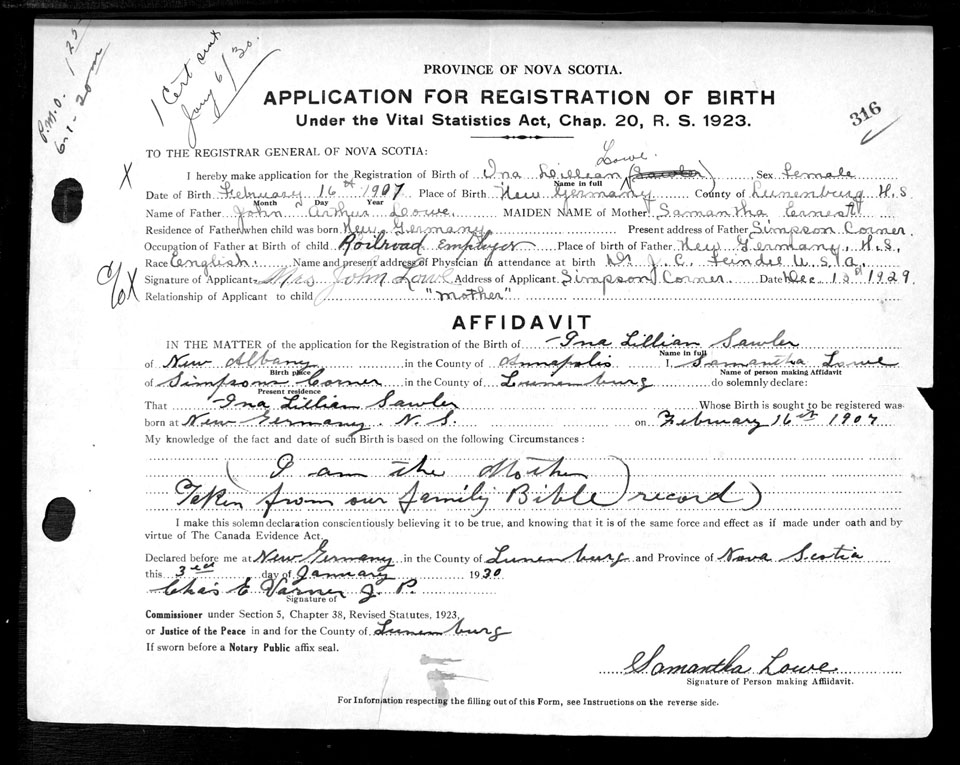 P.M.O. 1 25
6-1-20
1 Cert sent
Jany 6/30.
316
PROVINCE OF NOVA SCOTIA.
APPLICATION FOR REGISTRATION OF BIRTH
Under the Vital Statistics Act, Chap. 20, R. S. 1923.
TO THE REGISTRAR GENERAL OF NOVA SCOTIA:
Lowe.
X I hereby make application for the Registration of Birth of Ina Lillian (Sawler) Sex Female
Name in full
Date of Birth February 16th 1907 Place of Birth New Germany County of Lunenburg N.S
Month Day Year
Name of Father John Arthur Lowe. MAIDEN NAME of Mother Samantha Ernest
Residence of Father when child was born New Germany Present address of Father Simpson Corner.
Occupation of Father at Birth of child Railroad Employee Place of birth of Father New Germany, N.S.,
Race English. Name and present address of Physician in attendance at birth Dr J. C. Feindel U.S.A.
Signature of Applicant Mrs John Lowe Address of Applicant Simpson Corner Date Dec 1929
Relationship of Applicant to child "Mother"
AFFIDAVIT
IN THE MATTER of the application for the Registration of the Birth of Ina Lillian Sawler
Name in full
of New Albany in the County of Annapolis I, Samantha Lowe
Birth place Name of person making Affidavit
of Simpsons Corner in the County of Lunenburg do solemnly declare:
Present residence
That Ina Lillian Sawler Whose Birth is sought to be registered was
born at New Germany. N. S. on February 16th 1907
My knowledge of the fact and date of such Birth is based on the following Circumstances:
(I am the Mother)
Taken from our family Bible record)
I make this solemn declaration conscientiously believing it to be true, and knowing that it is of the same force and effect as if made under oath and by
virtue of The Canada Evidence Act.
Declared before me at New Germany in the County of Lunenburg and Province of Nova Scotia
this 3rd day of January 1930
Chas E Varner J. P.
Signature of
Commissioner under Section 5, Chapter 38, Revised Statutes, 1923,
or Justice of the Peace in and for the County of Lunenburg
If sworn before a Notary Public affix seal.
Samantha Lowe
Signature of Person making Affidavit.
For Information respecting the filling out of this Form, see Instructions on the reverse side.